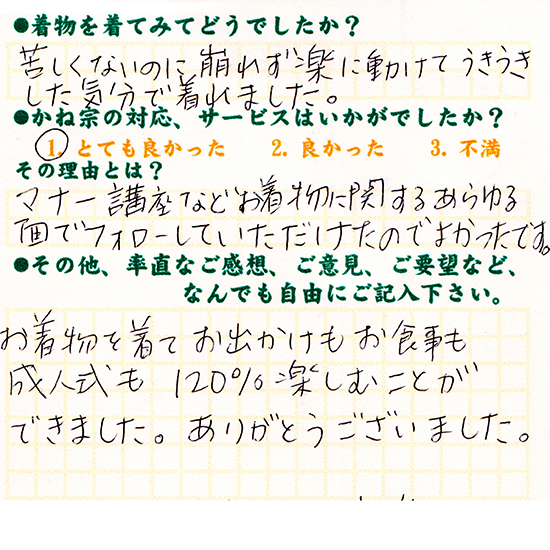 ●着物を着てみてどうでしたか?
苦しくないのに崩れず楽に動けてうきうき
した気分で着れました。
●かね宗の対応、サービスはいかがでしたか?
1. とても良かった 2. 良かった 3. 不満
その理由とは?
マナー講座などお着物に関するあらゆる
面でフォローしていただけたのでよかったです。
●その他、率直なご感想、ご意見、ご要望など、
なんでも自由にご記入下さい。
お着物を着てお出かけもお食事も
成人式も120%楽しむことが
できました。ありがとうございました。